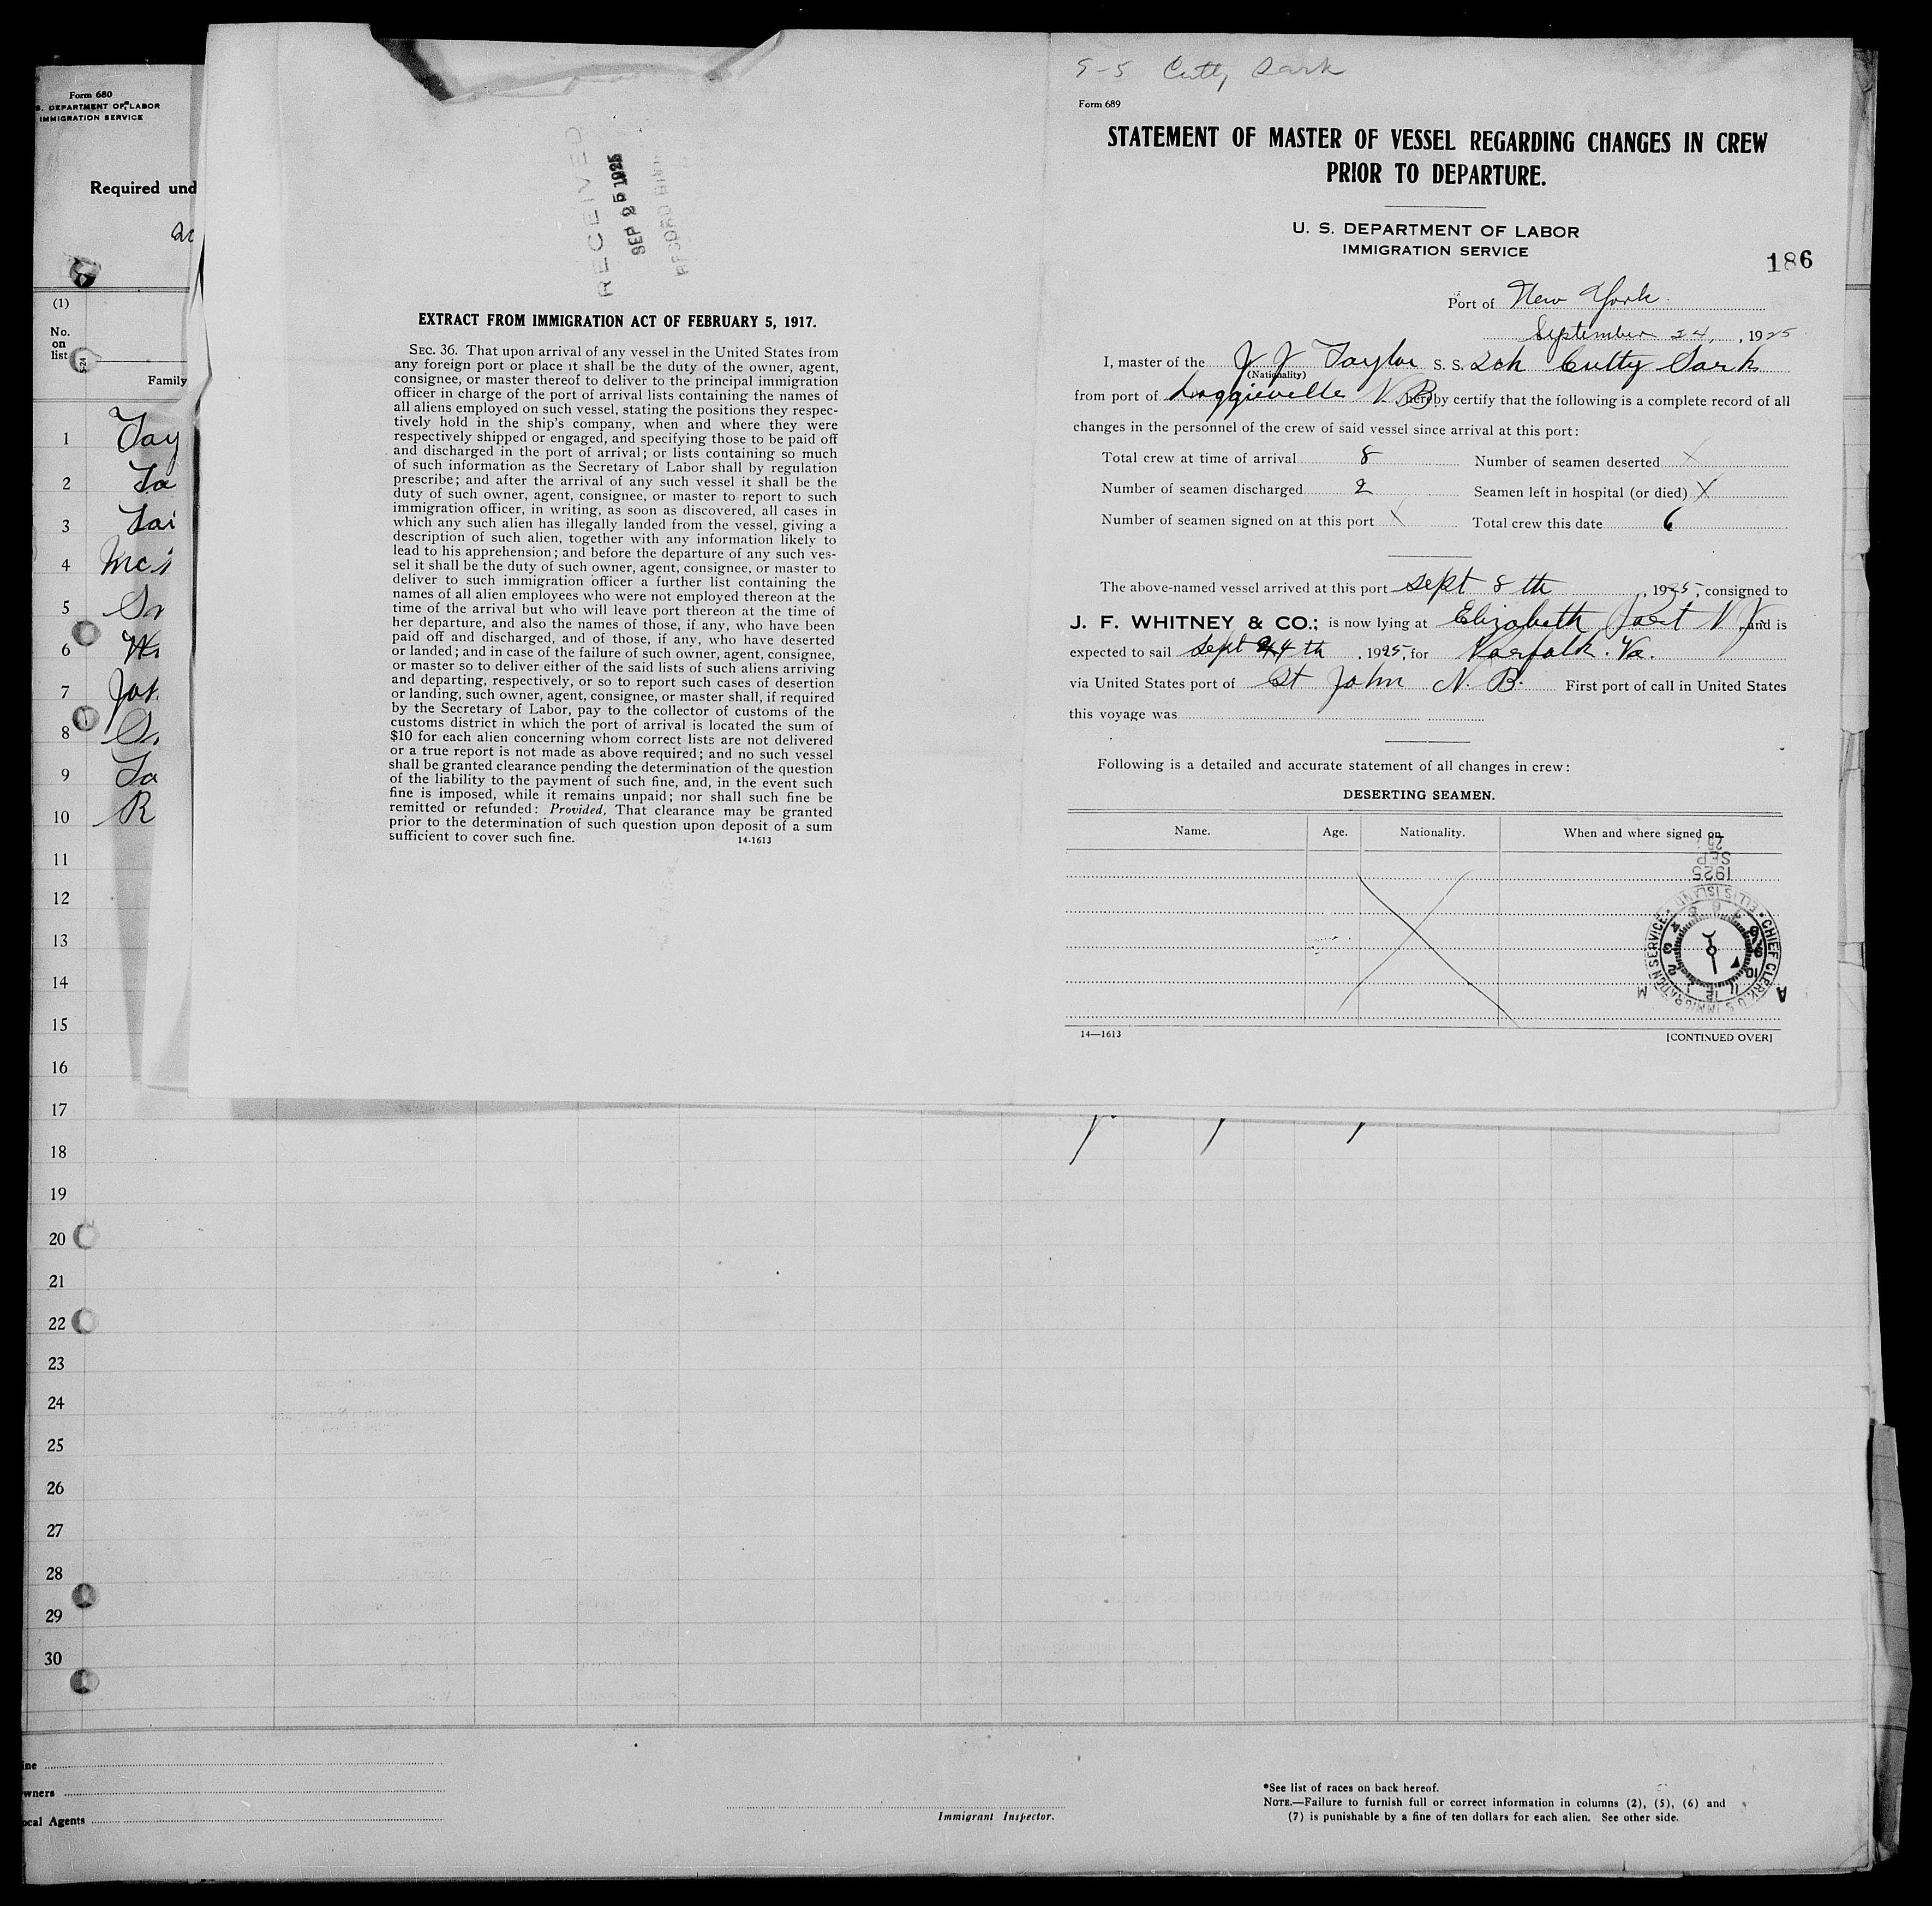 Form 680
S. DEPARTMENT OF LABOR
IMMIGRATION SERVICE
Required und
(1)
No.
on
list
Family
1 Tay
2 Ta
3 Tai
4
5
6
7 Joh
8
9 Ta
10 R
11
12
13
14
15
16
17
18
19
20
21
22
23
24
25
26
27
28
29
30
ine
wners
ocal Agents
Immigrant Inspector.
*See list of races on back hereof.
NOTE.—Failure to furnish full or correct information in columns (2), (5), (6) and
(7) is punishable by a fine of ten dollars for each alien. See other side.
RECEIVED
SEP 25 1925
EXTRACT FROM IMMIGRATION ACT OF FEBRUARY 5, 1917.
SEC. 36. That upon arrival of any vessel in the United States from
any foreign port or place it shall be the duty of the owner, agent,
consignee, or master thereof to deliver to the principal immigration
officer in charge of the port of arrival lists containing the names of
all aliens employed on such vessel, stating the positions they respec-
tively hold in the ship's company, when and where they were
respectively shipped or engaged, and specifying those to be paid off
and discharged in the port of arrival; or lists containing so much
of such information as the Secretary of Labor shall by regulation
prescribe; and after the arrival of any such vessel it shall be the
duty of such owner, agent, consignee, or master to report to such
immigration officer, in writing, as soon as discovered, all cases in
which any such alien has illegally landed from the vessel, giving a
description of such alien, together with any information likely to
lead to his apprehension; and before the departure of any such ves-
sel it shall be the duty of such owner, agent, consignee, or master to
deliver to such immigration officer a further list containing the
names of all alien employees who were not employed thereon at the
time of the arrival but who will leave port thereon at the time of
her departure, and also the names of those, if any, who have been
paid off and discharged, and of those, if any, who have deserted
or landed; and in case of the failure of such owner, agent, consignee,
or master so to deliver either of the said lists of such aliens arriving
and departing, respectively, or so to report such cases of desertion
or landing, such owner, agent, consignee, or master shall, if required
by the Secretary of Labor, pay to the collector of customs of the
customs district in which the port of arrival is located the sum of
$10 for each alien concerning whom correct lists are not delivered
or a true report is not made as above required; and no such vessel
shall be granted clearance pending the determination of the question
of the liability to the payment of such fine, and, in the event such
fine is imposed, while it remains unpaid; nor shall such fine be
remitted or refunded: Provided, That clearance may be granted
prior to the determination of such question upon deposit of a sum
sufficient to cover such fine.
14-1613
9-5 Cutty Sark
Form 689
STATEMENT OF MASTER OF VESSEL REGARDING CHANGES IN CREW
PRIOR TO DEPARTURE.
U. S. DEPARTMENT OF LABOR
IMMIGRATION SERVICE
186
Port of New York
September 24, , 1925
I, master of the J J Taylor S. S. Sch Cutty Sark
(Nationality)
from port of Loggieville N B hereby certify that the following is a complete record of all
changes in the personnel of the crew of said vessel since arrival at this port:
Total crew at time of arrival 8 Number of seamen deserted X
Number of seamen discharged 2 Seamen left in hospital (or died) X
Number of seamen signed on at this port X Total crew this date 6
The above-named vessel arrived at this port Sept 8 th , 1925, consigned to
J. F. WHITNEY & CO.; is now lying at Elizabeth Port N J and is
expected to sail Sept 24 th , 1925, for Norfolk. Va.
via United States port of St John N. B. First port of call in United States
this voyage was
Following is a detailed and accurate statement of all changes in crew:
DESERTING SEAMEN.
Name. Age. Nationality. When and where signed on.
25
SEP
1925
CHIEF CLERK U S IMMIGRATION SERVICE ELLIS ISLAND
A M
14—1613
[CONTINUED OVER]